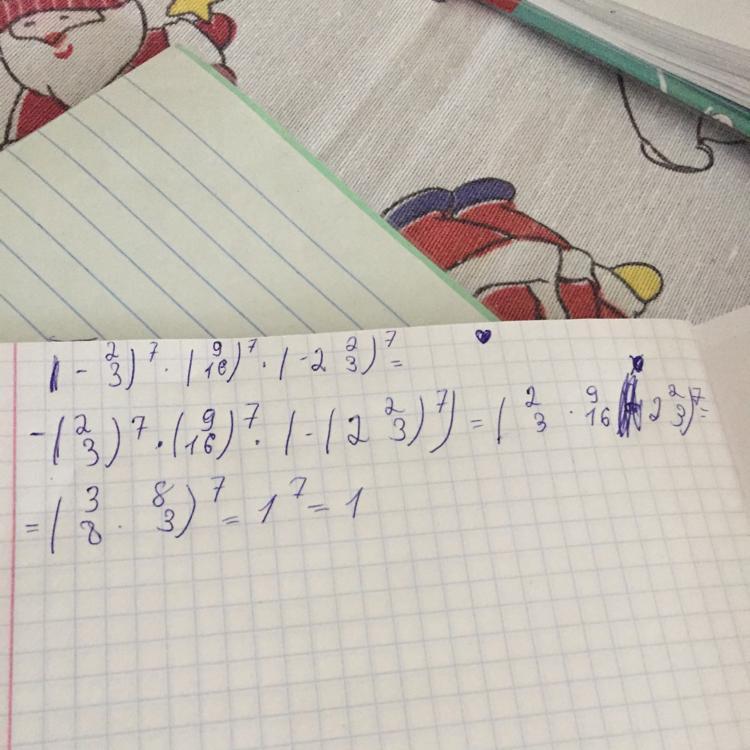 (- 2/3)^7 · (9/16)^7 · (-2 2/3)^7 =
-(2/3)^7 · (9/16)^7 · (-(2 2/3)^7) = (2/3 · 9/16 · 2 2/3)^7 =
= (3/8 · 8/3)^7 = 1^7 = 1